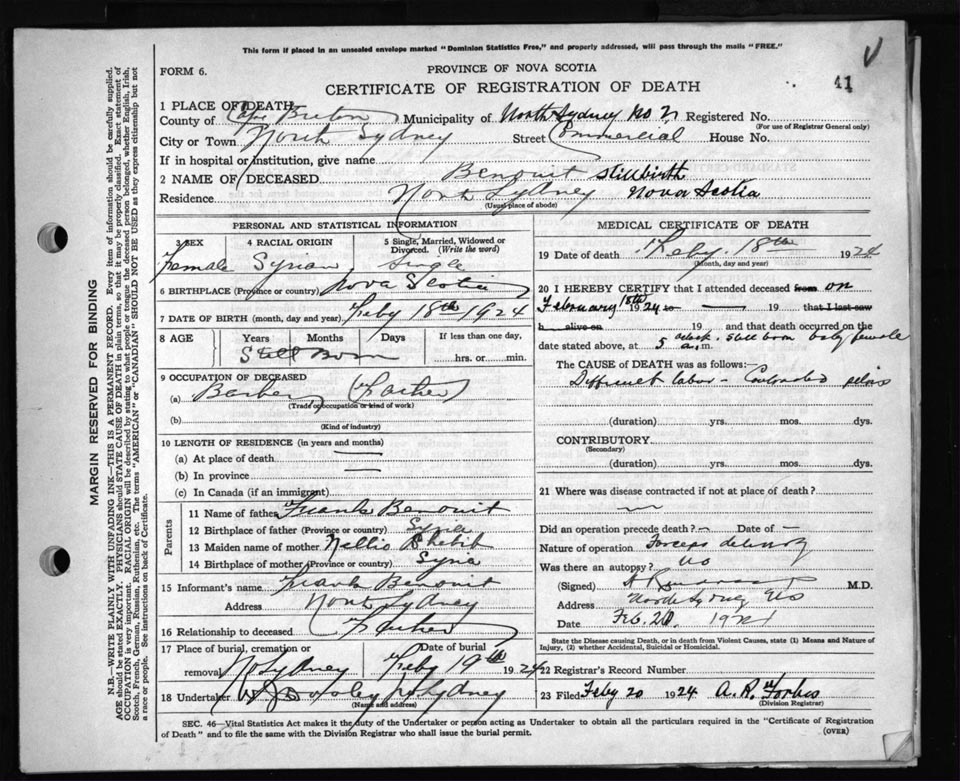 This form if placed in an unsealed envelope marked "Dominion Statistics Free," and properly addressed, will pass through the mails "FREE."
FORM 6.
PROVINCE OF NOVA SCOTIA
CERTIFICATE OF REGISTRATION OF DEATH
41
1 PLACE OF DEATH,
County of Cape Breton Municipality of North Sydney No 2 Registered No.
(For use of Registrar General only)
City or Town North Sydney Street Commercial House No.
If in hospital or institution, give name
2 NAME OF DECEASED Benouit Stillbirth
Residence North Sydney Nova Scotia
(Usual place of abode)
PERSONAL AND STATISTICAL INFORMATION
3 SEX 4 RACIAL ORIGIN 5 Single, Married, Widowed or Divorced. (Write the word)
Female Syrian Single
6 BIRTHPLACE (Province or country) Nova Scotia
7 DATE OF BIRTH (month, day and year) Feby 18th 1924
8 AGE Years Months Days If less than one day,
Still Born hrs. or min.
9 OCCUPATION OF DECEASED
(a) Barber (Father)
(Trade occupation or kind of work)
(b)
(Kind of industry)
10 LENGTH OF RESIDENCE (in years and months)
(a) At place of death
(b) In province
(c) In Canada (if an immigrant)
Parents
11 Name of father Frank Benouit
12 Birthplace of father (Province or country) Syria
13 Maiden name of mother Nellie Shebib
14 Birthplace of mother (Province or country) Syria
15 Informant's name Frank Benouit
Address North Sydney
16 Relationship to deceased Father
17 Place of burial, cremation or removal No Sydney Date of burial Feby 19th 1924
18 Undertaker N Sydney
(Name and address)
MEDICAL CERTIFICATE OF DEATH
19 Date of death Feby 18th 1924
(Month, day and year)
20 I HEREBY CERTIFY that I attended deceased from on
February 18th 1924 to 19 that I last saw
h alive on 19 and that death occurred on the
date stated above, at 5 oclock a.m. Still born baby female
The CAUSE of DEATH was as follows:
Difficult labor - Contracted pelvis
(duration) yrs. mos. dys.
CONTRIBUTORY
(Secondary)
(duration) yrs. mos. dys.
21 Where was disease contracted if not at place of death?
Did an operation precede death? — Date of —
Nature of operation Forceps delivery
Was there an autopsy? No
(Signed) M.D.
Address North Sydney NS
Date Feb. 20. 1924
State the Disease causing Death, or in death from Violent Causes, state (1) Means and Nature of Injury, (2) whether Accidental, Suicidal or Homicidal.
22 Registrar's Record Number
23 Filed Feby 20 1924 A. R. Forbes
(Division Registrar)
SEC. 46—Vital Statistics Act makes it the duty of the Undertaker or person acting as Undertaker to obtain all the particulars required in the "Certificate of Registration
of Death" and to file the same with the Division Registrar who shall issue the burial permit.
(OVER)
MARGIN RESERVED FOR BINDING
N.B.—WRITE PLAINLY WITH UNFADING INK—THIS IS A PERMANENT RECORD. Every item of information should be carefully supplied.
AGE should be stated EXACTLY. PHYSICIANS should STATE CAUSE OF DEATH in plain terms, so that it may be properly classified. Exact statement of
OCCUPATION is very important. RACIAL ORIGIN will be described by stating to what people or tongue the deceased person belonged, whether English, Irish,
Scotch, French, German, Russian, Ruthenian, etc. The terms "AMERICAN" or "CANADIAN" SHOULD NOT BE USED as they express citizenship but not
a race or people. See instructions on back of Certificate.